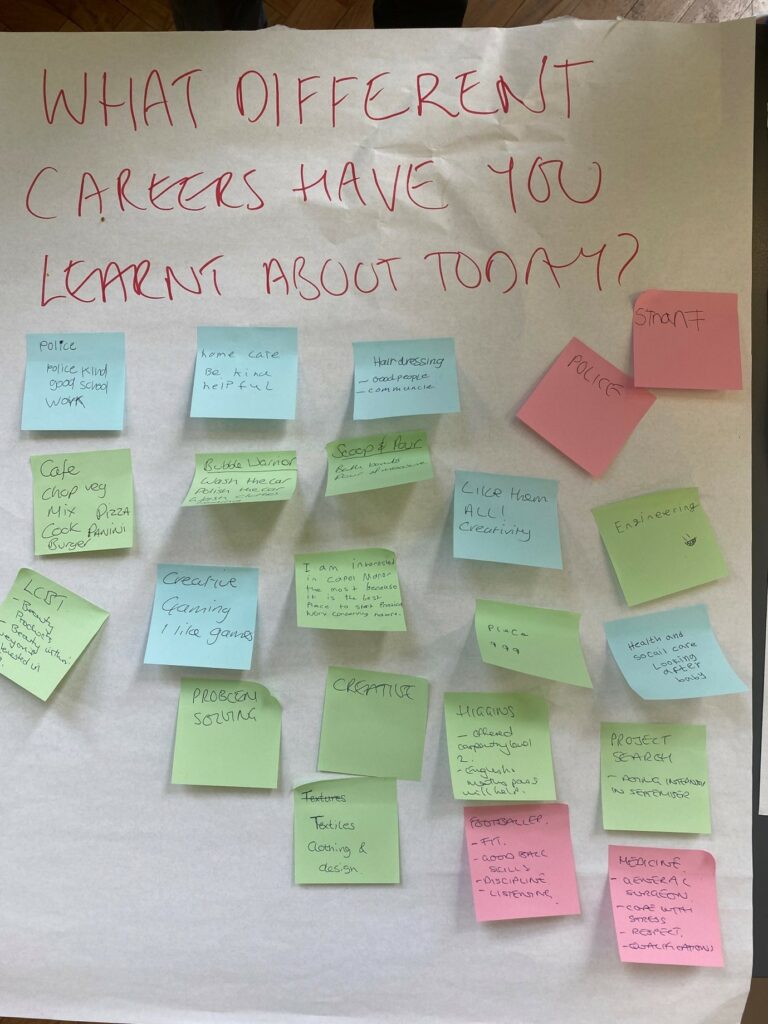 WHAT DIFFERENT
CAREERS HAVE YOU
LEARNT ABOUT TODAY?
Police
police kind
good school
work
home care
Be kind
helpful
Hairdressing
- Good people
- communcie
POLICE
Cafe
Chop veg
Mix PIZZA
Cook PANINI
Burger
Bubble Warrior
Wash the car
Polish the car
Scoop & Pour
Bath bombs
Pour &
Like them
ALL!
Creativity
Engineering
LCBT
- Beauty
Products
- Beauty within
Creative
Gaming
I like games
I am interested
in Capel Manor
the most because
it is the best
Place to
work concerning nature.
Place
999
Health and
socail care
Looking
after
baby
PROBLEM
SOLVING
CREATIVE
HIGGINS
- offered
carpentry level
2.
- English &
maths pass
will help.
PROJECT
SEARCH
- DOING INTERNSHIP
IN SEPTEMBER
Textures
Textiles
Clothing &
design
FOOTBALLER.
- FIT.
- GOOD BALL
SKILLS
- DISCIPLINE
- LISTENING
MEDICINE.
- GENERAL
SURGEON
- COPE WITH
STRESS
- RESPECT.
- QUALIFICATIONS